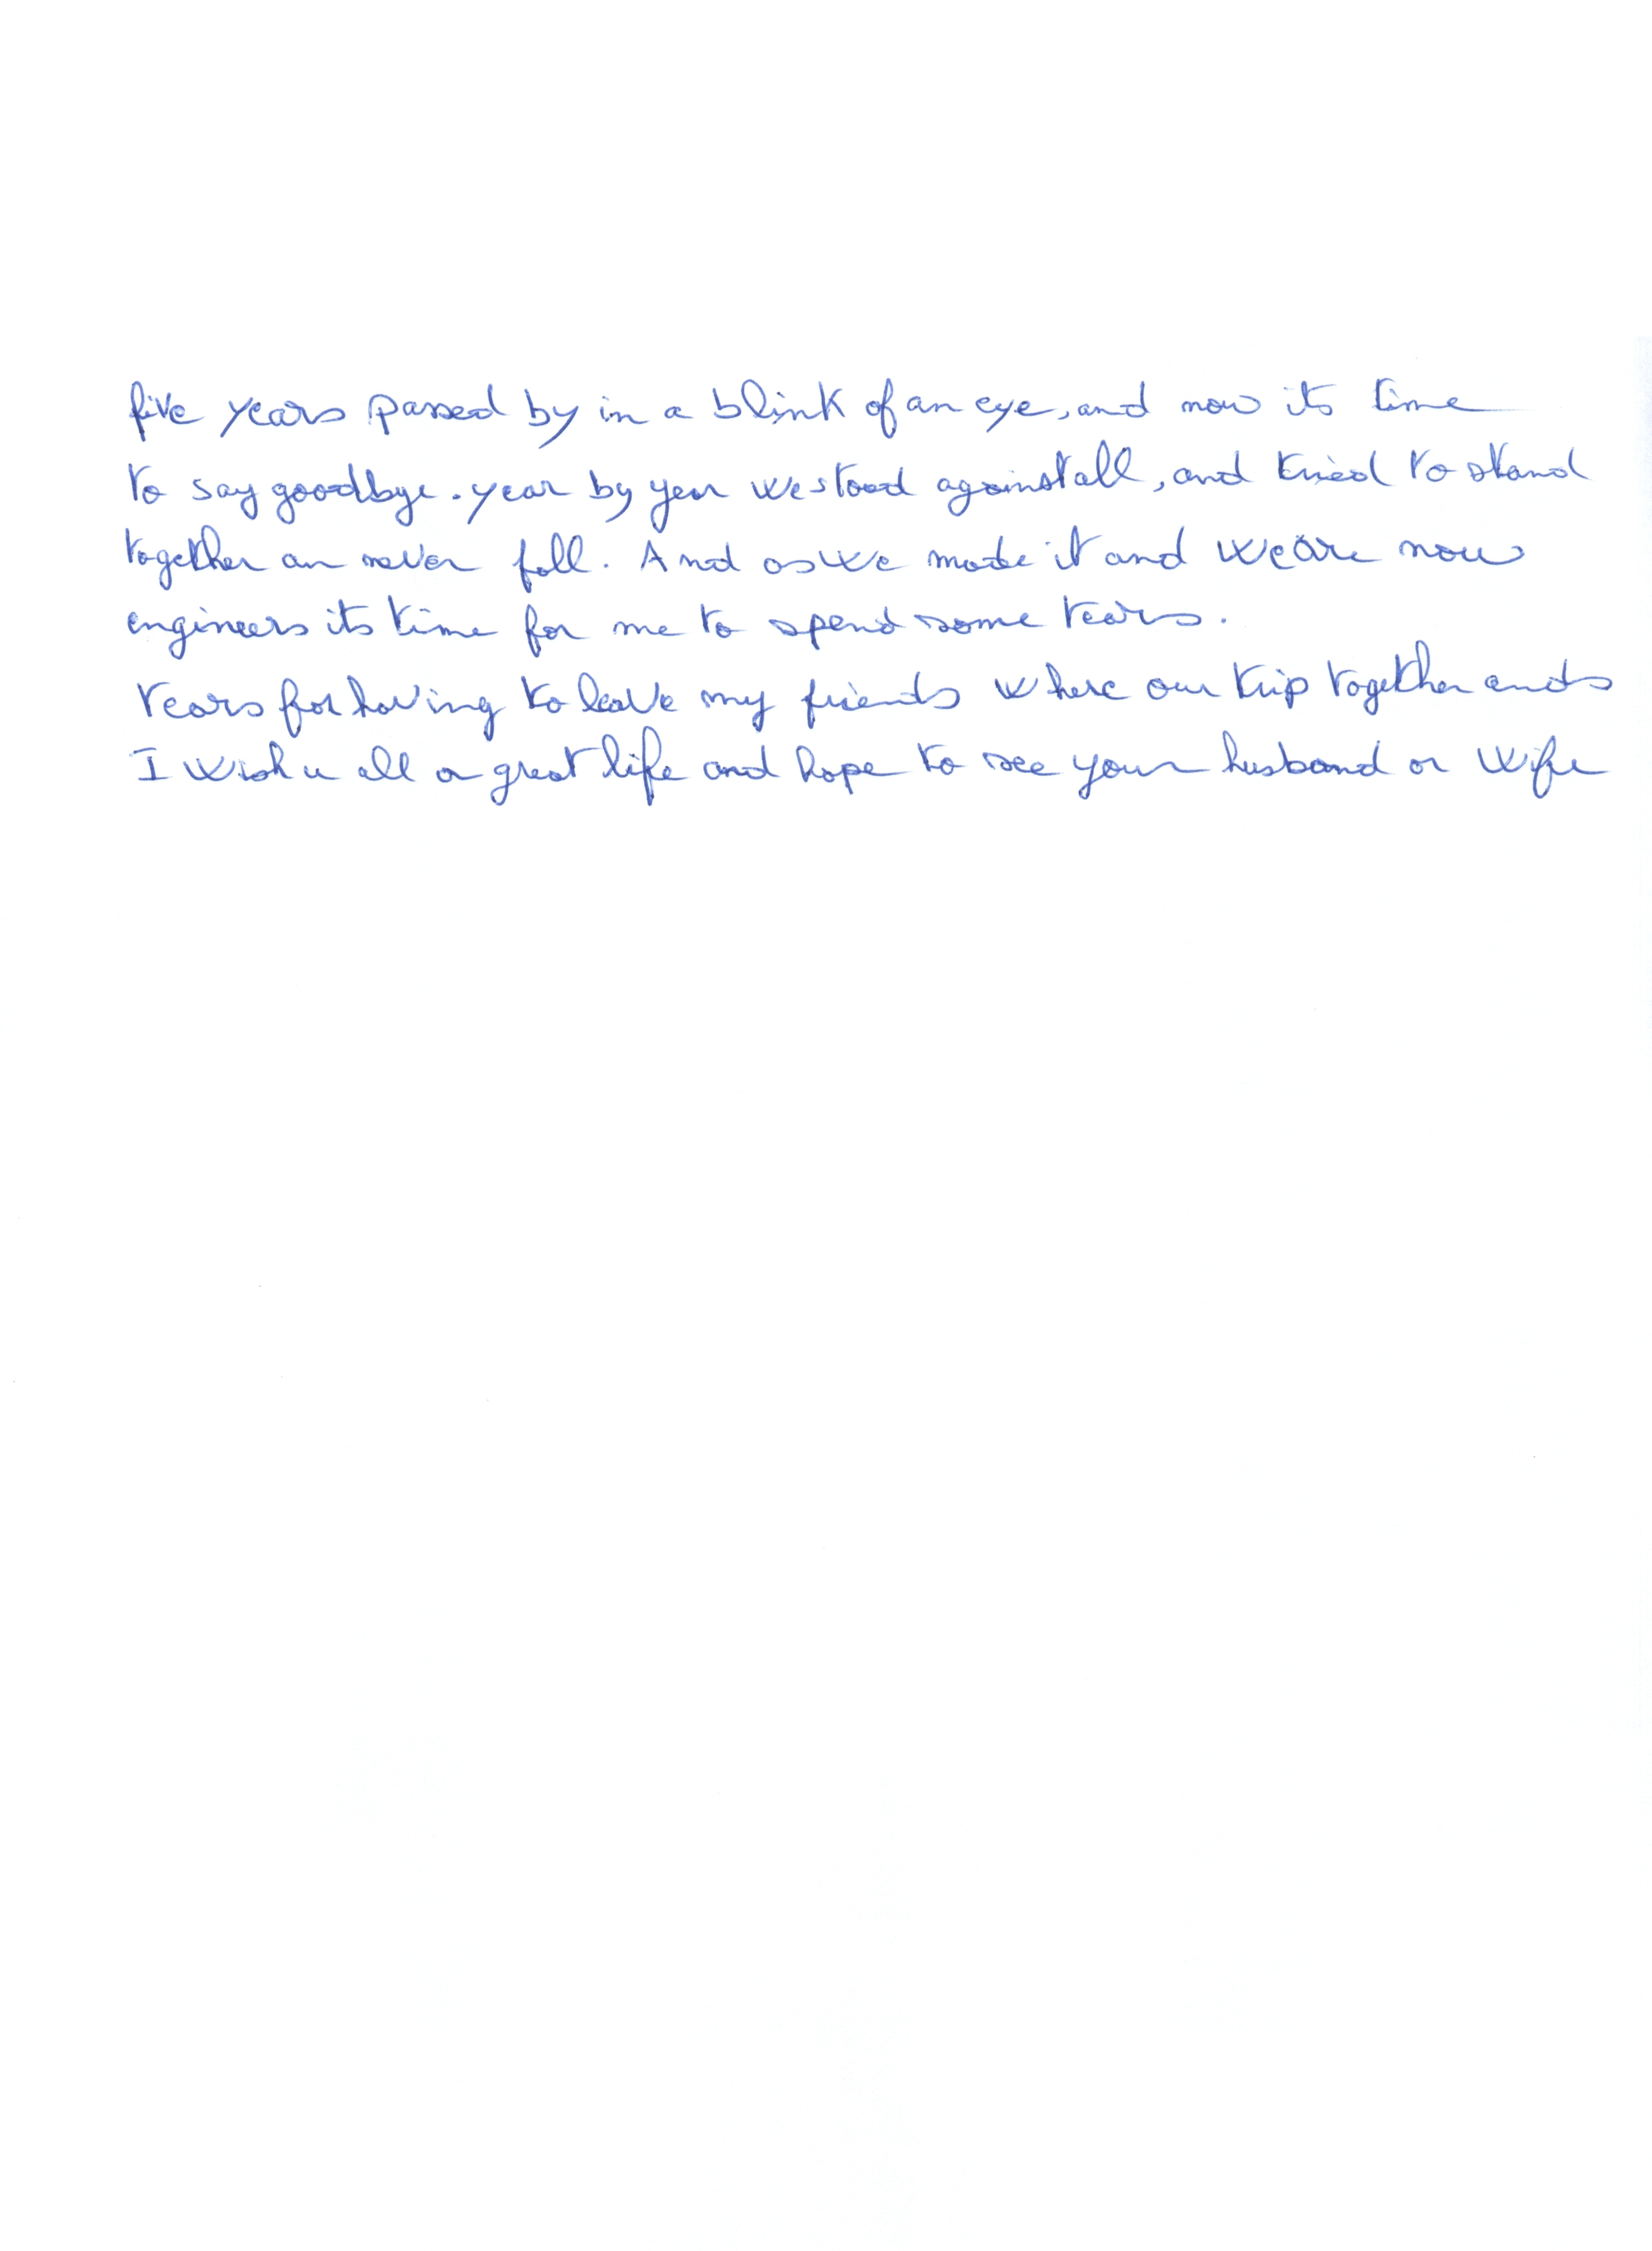 five years passed by in a blink of an eye, and now its time
to say goodbye. year by year we stood against all, and tried to stand
together an never fall. And as we made it and we are now
engineers its time for me to spend some tears.
Tears for having to leave my friends where our trip together ends
I wish u all a great life and hope to see your husband or wife